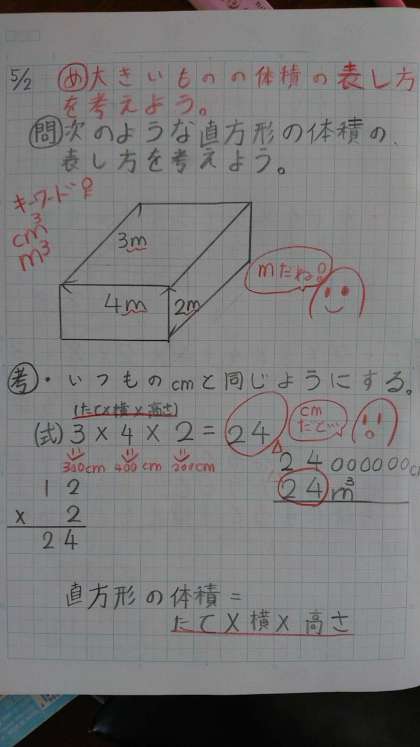 5/2 ㋱大きいものの体積の表し方
を考えよう。
問次のような直方形の体積の、
表し方を考えよう。
キーワード
cm³
m³
3m
4m
2m
mだね!
考・いつものcmと同じようにする。
(たて×横×高さ)
(式) 3 × 4 × 2 = 24
300cm 400cm 200cm
cm
だと…
24000000c
24m³
12
× 2
24
直方形の体積=
たて×横×高さ